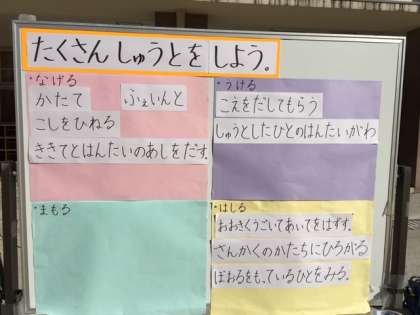 たくさんしゅうとをしよう。
・なげる
かたて
ふぇいんと
こしをひねる
ききてとはんたいのあしをだす。
・うける
こえをだしてもらう
しゅうとしたひとのはんたいがわ
・まもる
・はしる
おおきくうごいてあいてをはずす。
さんかくのかたちにひろがる
ぼおるをもっているひとをみる。